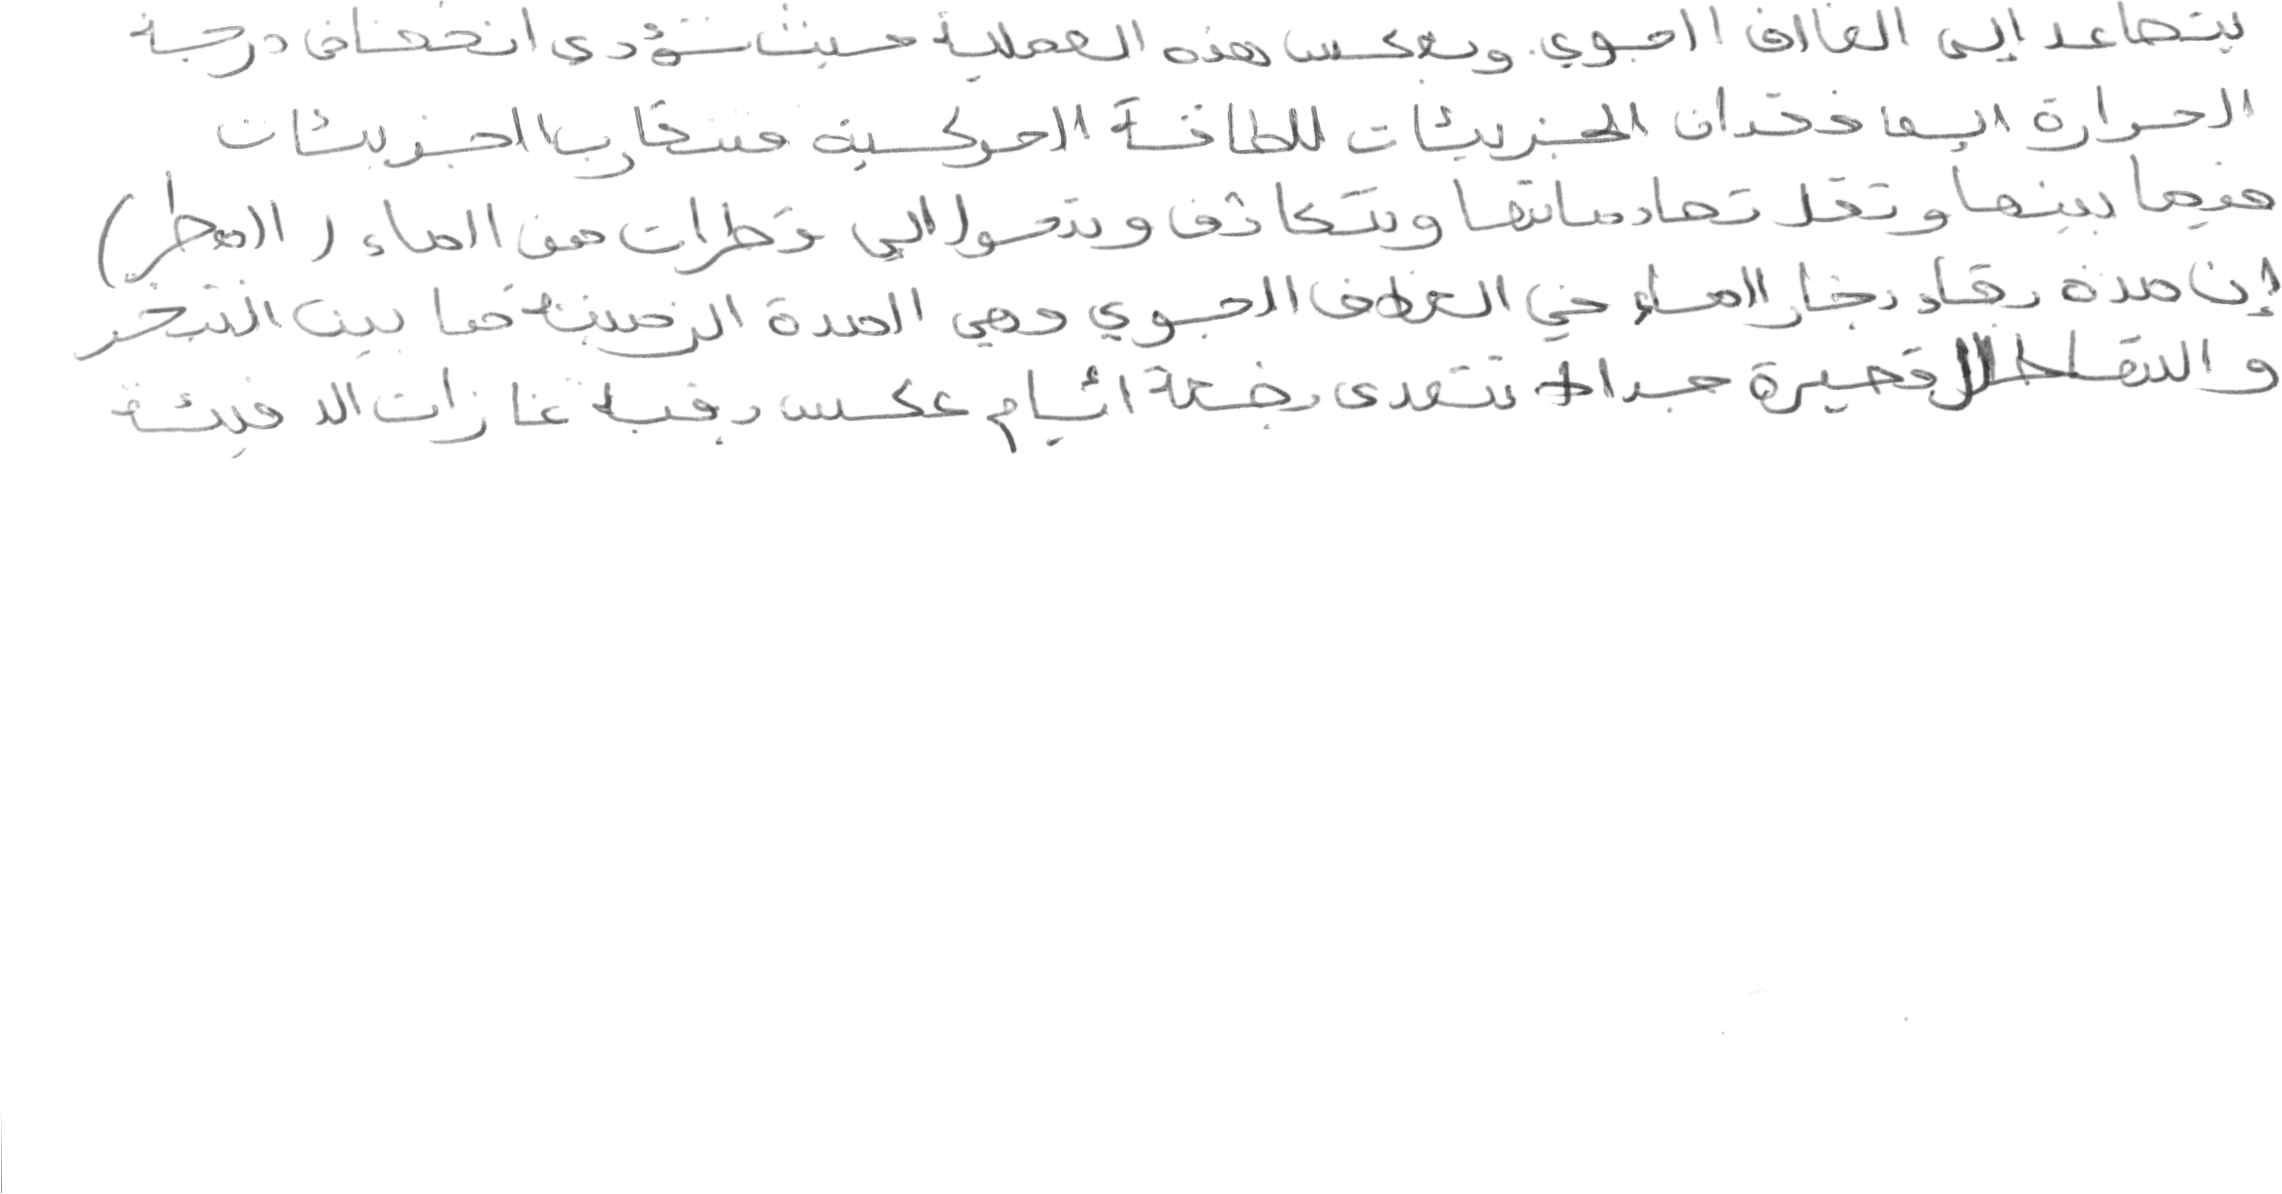 يتصاعد إلى الغلاف الجوي. وبعكس هذه العملية حيث تؤدي انخفاض درجة
الحرارة إلى فقدان الجزيئات للطاقة الحركية فتتقارب الجزيئات
فيما بينها وتقل تصادماتها وتتكاثف وتتحول إلى قطرات من الماء (المطر)
إن مدة بقاء بخار الماء في الغلاف الجوي وهي المدة الزمنية ما بين التبخر
والتساقط قصيرة جدا لا تتعدى بضعة أيام عكس بقية غازات الدفيئة